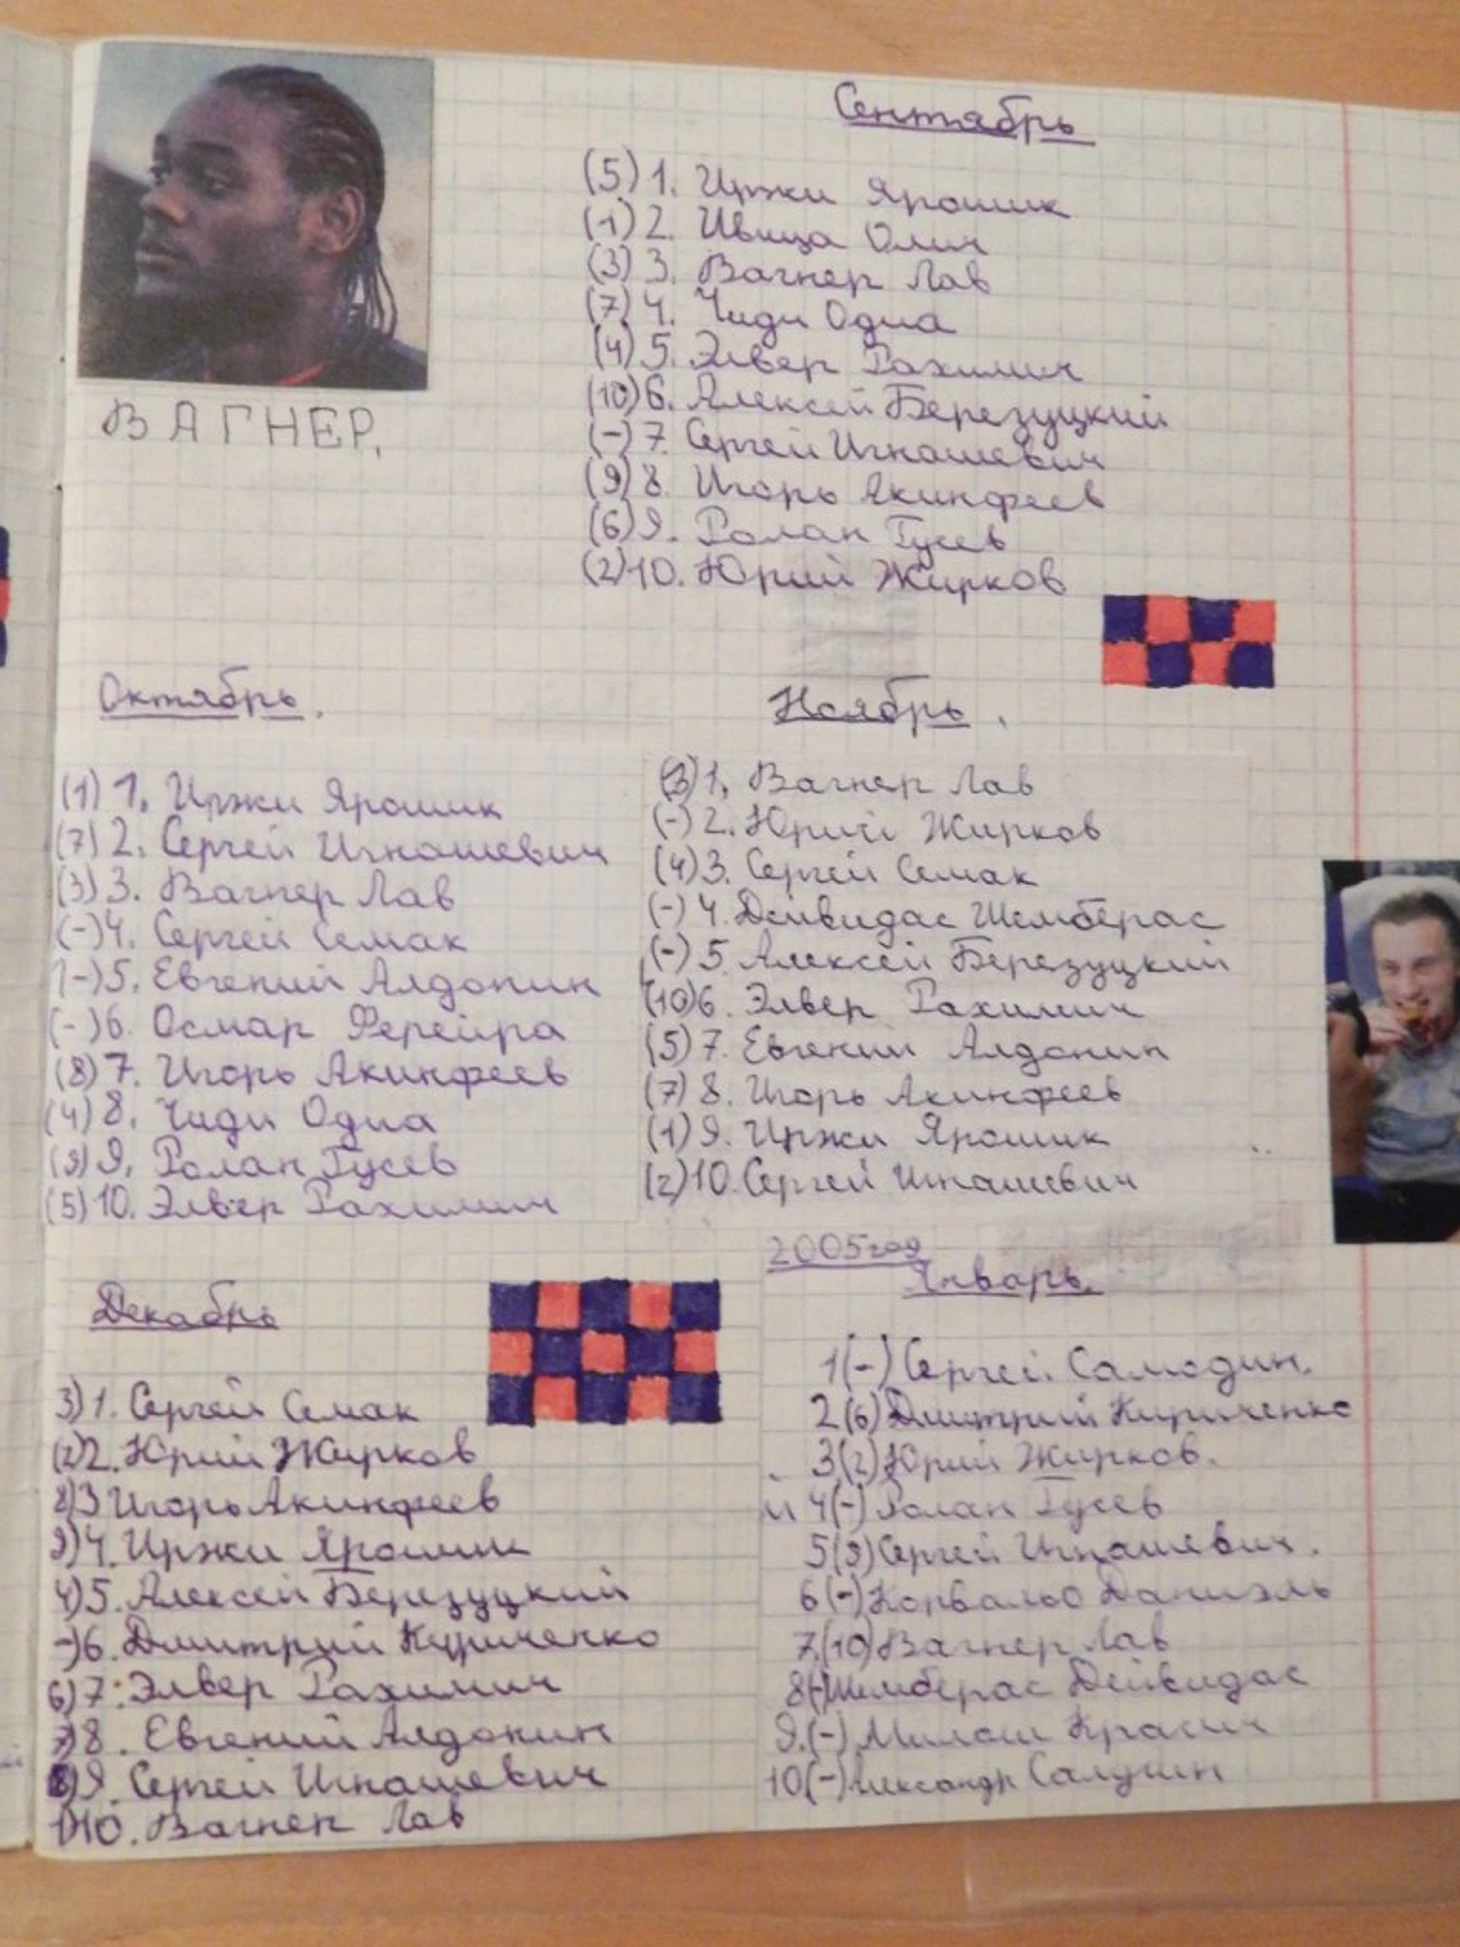 Сентябрь
(5) 1. Иржи Ярошик
(1) 2. Ивица Олич
(3) 3. Вагнер Лав
(7) 4. Чиди Одиа
(4) 5. Элвер Рахимич
(10) 6. Алексей Березуцкий
(-) 7. Сергей Игнашевич
(9) 8. Игорь Акинфеев
(6) 9. Ролан Гусев
(2) 10. Юрий Жирков
ВАГНЕР.
Октябрь.
(1) 1. Иржи Ярошик
(7) 2. Сергей Игнашевич
(3) 3. Вагнер Лав
(-) 4. Сергей Семак
(-) 5. Евгений Алдонин
(-) 6. Осмар Ферейра
(8) 7. Игорь Акинфеев
(4) 8. Чиди Одиа
(9) 9. Ролан Гусев
(5) 10. Элвер Рахимич
Ноябрь.
(3) 1. Вагнер Лав
(-) 2. Юрий Жирков
(4) 3. Сергей Семак
(-) 4. Дейвидас Шемберас
(-) 5. Алексей Березуцкий
(10) 6. Элвер Рахимич
(5) 7. Евгений Алдонин
(7) 8. Игорь Акинфеев
(1) 9. Иржи Ярошик
(2) 10. Сергей Игнашевич
Декабрь
3) 1. Сергей Семак
(2) 2. Юрий Жирков
8) 3 Игорь Акинфеев
9) 4. Иржи Ярошик
4) 5. Алексей Березуцкий
-) 6. Дмитрий Кириченко
6) 7. Элвер Рахимич
8. Евгений Алдонин
9. Сергей Игнашевич
1) 10. Вагнер Лав
2005 год
Январь.
1 (-) Сергей Самодин.
2 (6) Дмитрий Кириченко
3 (2) Юрий Жирков.
4 (-) Ролан Гусев
5 (9) Сергей Игнашевич.
6 (-) Корвальо Даниэль
7. (10) Вагнер Лав
8 (-) Шемберас Дейвидас
9. (-) Милош Красич
10 (-) Александр Салугин